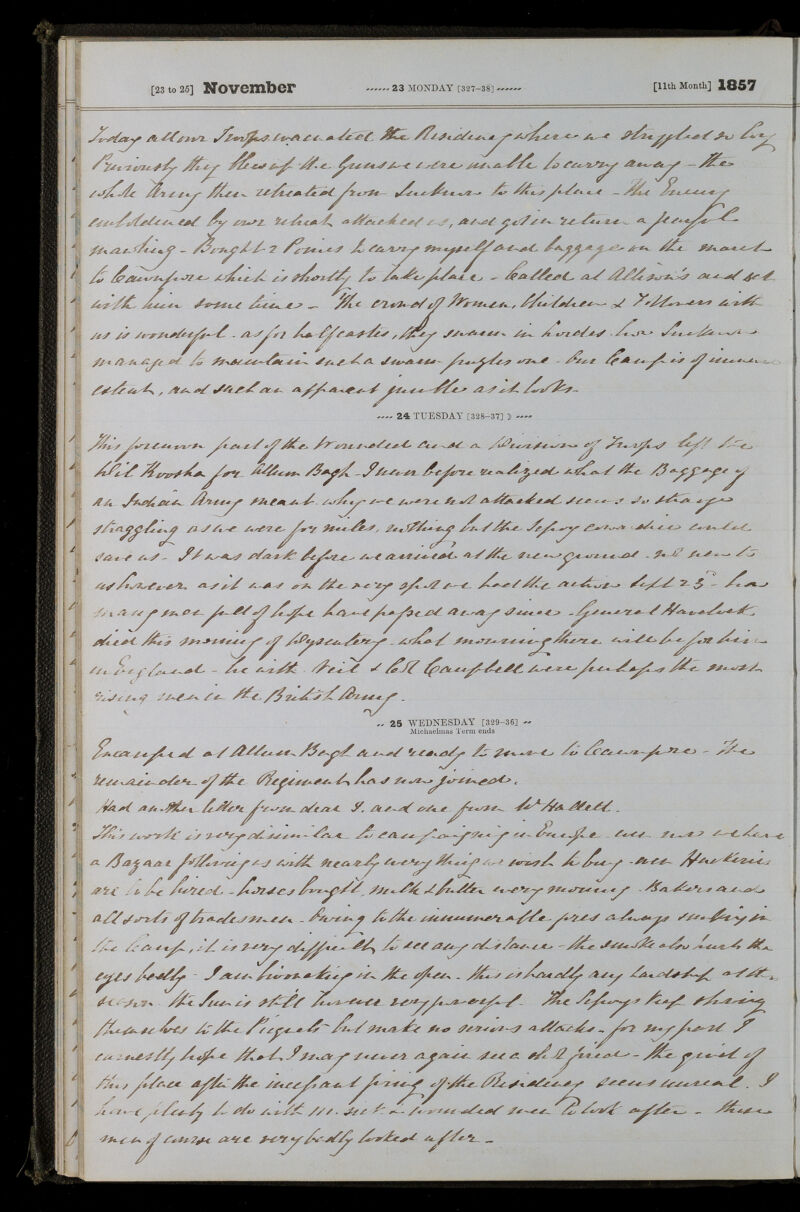 [23 to 25] November ...... 23 MONDAY [327-38] ...... [11th Month] 1857
Today all our Troops evacuated the Residency where we struggled so long
Previously they blew up the Guns we were unable to carry away - the
whole Army then retreated from Lucknow to this place - The Enemy
emboldened by our retreat attacked us, and got in return a fearful
mawling - Bought 2 Ponies to carry myself and baggage on the march
to Cawnpore which is shortly to take place - Called at Allison's and sat
with him some time - The crowd of Women, Children & Followers with
us is wonderful - as for halfcastes, they swarm in hordes how Lucknow
managed to maintain such a swarm puzzles one - Our Camp is of immense
extent, and such an apparent jumble as it looks -
.... 24 TUESDAY [328-37] ....
This forenoon part of the Wounded and a Division of Troops left the
Dil Koosha for Allum Bagh - I never before realized what the Baggage of
an Indian Army meant - why we were not attacked seems so strange
straggling as we were for miles, nothing but the Sepoy cowardice could
save us - It was dark before we arrived at the new ground - not new to
us however as it was on the very spot we had the action Sept 23rd - how
many men full of hope have passed away since - General Havelock
died this morning of Dysentery - what mourning there will be for him
in England - he with Neil & Col Campbell were perhaps the most
rising men in the British Army.
.. 25 WEDNESDAY [329-36] ..
Michaelmas Term ends
Encamped at Allum Bagh and ready to move to Cawnpore - The
remainder of the Regiment has now joined.
Had another letter from dear J. and one from W Hallett.
This work is very disimilar to campaigning in Europe - even now we have
a Bazaar following us with nearly every thing we wish to buy - even Hackeries
are to be hired - horses bought, milk & butter every morning - Bakers and
all sorts of tradesmen - Owing to the innumerable fires always smoking in
the Camp, it is very difficult to see any distance - the smoke also hurts the
eyes badly - I am bivouaking in the open - this is hardly any hardship at this
season - the Sun is still however very powerful - The Sepoys keep showing
themselves to the Picquets but make no serious attacks - for my part I
earnestly hope that I may never again see a shot fired - the quiet of
this place after the incessant firing of the Residency seems unreal. I
have plenty to do with wounded men to look after - these
men of course are very badly looked after -